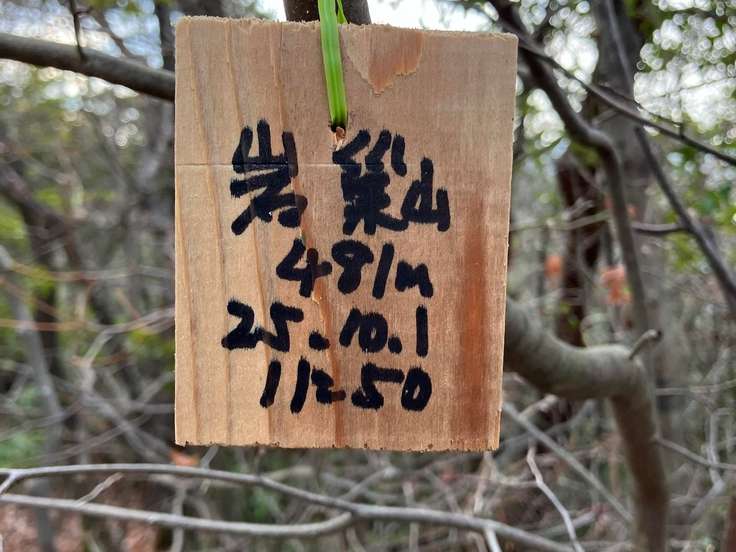 岩巣山
481m
25.10.1
11:50